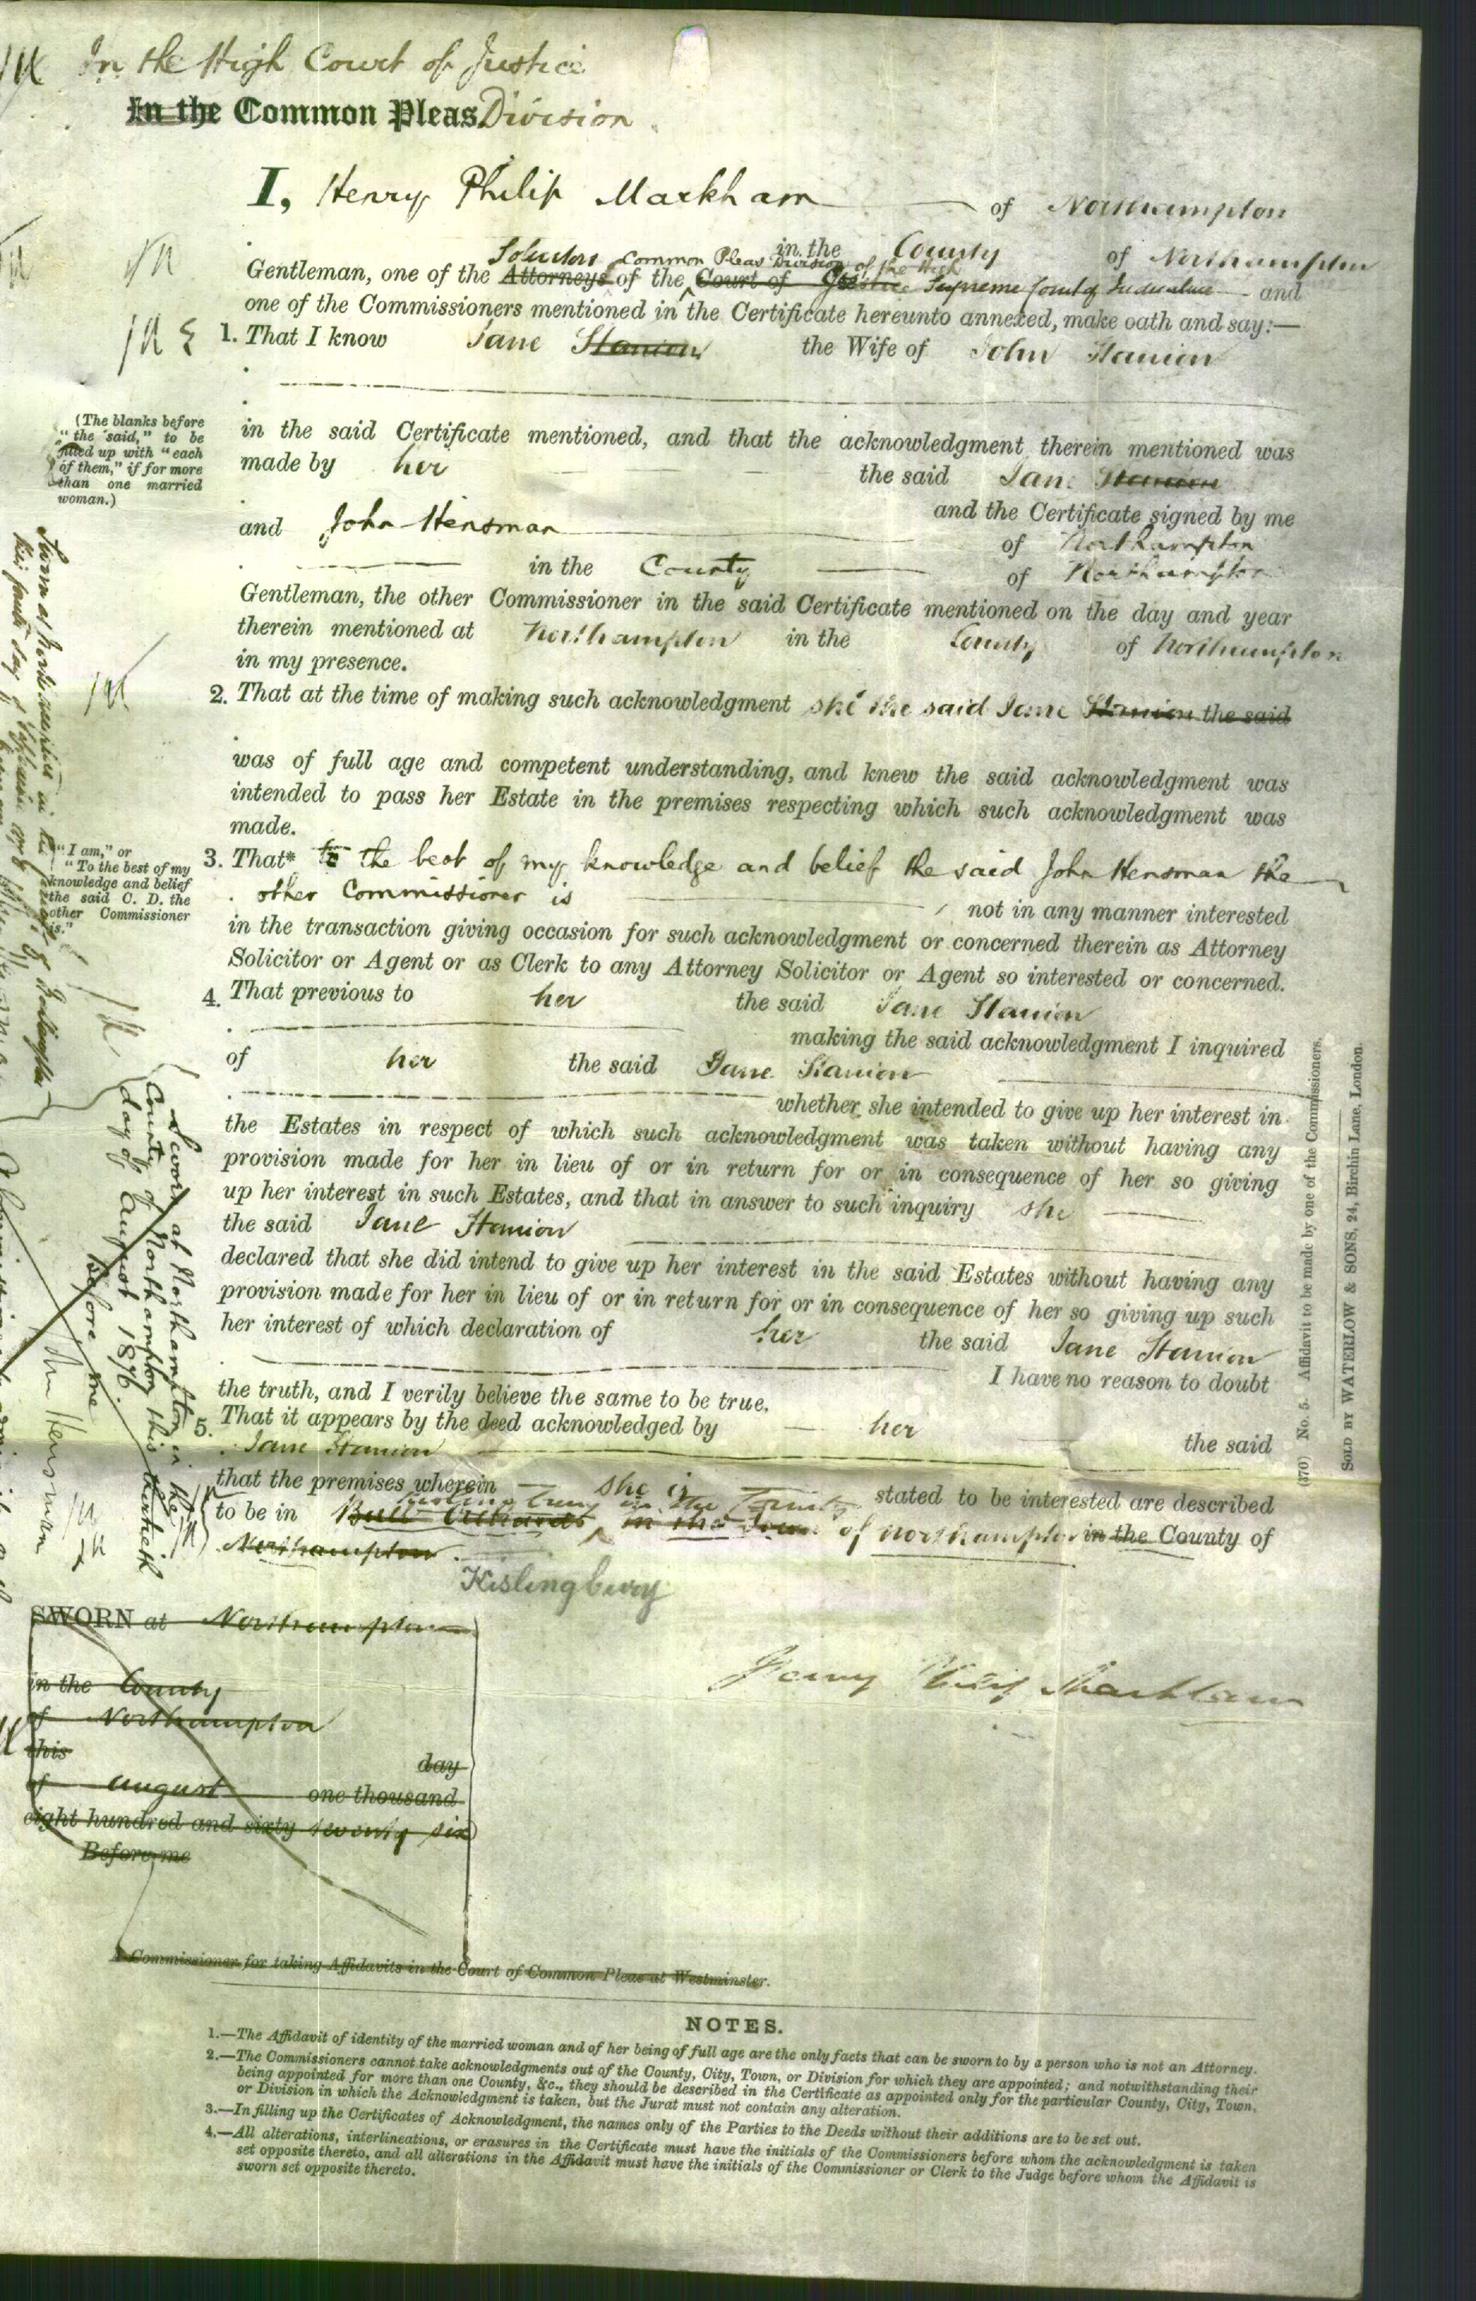 In the High Court of Justice
In the Common Pleas Division
I, Henry Philip Markham of Northampton
in the County of Northampton
Solicitors Common Pleas Division of the High
Gentleman, one of the Attorneys of the Court of Justice Supreme Court of Judicature and
one of the Commissioners mentioned in the Certificate hereunto annexed, make oath and say:—
1. That I know Jane Stanion the Wife of John Stanion
(The blanks before
"the said," to be
filled up with "each
of them," if for more
than one married
woman.)
in the said Certificate mentioned, and that the acknowledgment therein mentioned was
made by her the said Jane Stanion
and the Certificate signed by me
and John Hensman of Northampton
in the County of Northampton
Gentleman, the other Commissioner in the said Certificate mentioned on the day and year
therein mentioned at Northampton in the County of Northampton
in my presence.
2. That at the time of making such acknowledgment she the said Jane Stanion the said
was of full age and competent understanding, and knew the said acknowledgment was
intended to pass her Estate in the premises respecting which such acknowledgment was
made.
"I am," or
"To the best of my
knowledge and belief
the said C. D. the
other Commissioner
is."
3. That* to the best of my knowledge and belief the said John Hensman the
other Commissioner is not in any manner interested
in the transaction giving occasion for such acknowledgment or concerned therein as Attorney
Solicitor or Agent or as Clerk to any Attorney Solicitor or Agent so interested or concerned.
4. That previous to her the said Jane Stanion
making the said acknowledgment I inquired
of her the said Jane Stanion
whether she intended to give up her interest in
the Estates in respect of which such acknowledgment was taken without having any
provision made for her in lieu of or in return for or in consequence of her so giving
up her interest in such Estates, and that in answer to such inquiry she
the said Jane Stanion
declared that she did intend to give up her interest in the said Estates without having any
provision made for her in lieu of or in return for or in consequence of her so giving up such
her interest of which declaration of her the said Jane Stanion
I have no reason to doubt
the truth, and I verily believe the same to be true.
5. That it appears by the deed acknowledged by her the said
Jane Stanion
that the premises wherein she is stated to be interested are described
in the County
to be in in the Town of Northampton in the County of
Northampton.
Kislingbury
Sworn at Northampton in the
County of Northampton this thirtieth
day of August 1876.
Before me
John Hensman
SWORN at Northampton
in the County
of Northampton
this day
of August one thousand
eight hundred and sixty seventy six
Before me
Henry Philip Markham
A Commissioner for taking Affidavits in the Court of Common Pleas at Westminster.
NOTES.
1.—The Affidavit of identity of the married woman and of her being of full age are the only facts that can be sworn to by a person who is not an Attorney.
2.—The Commissioners cannot take acknowledgments out of the County, City, Town, or Division for which they are appointed; and notwithstanding their
being appointed for more than one County, &c., they should be described in the Certificate as appointed only for the particular County, City, Town,
or Division in which the Acknowledgment is taken, but the Jurat must not contain any alteration.
3.—In filling up the Certificates of Acknowledgment, the names only of the Parties to the Deeds without their additions are to be set out.
4.—All alterations, interlineations, or erasures in the Certificate must have the initials of the Commissioners before whom the acknowledgment is taken
set opposite thereto, and all alterations in the Affidavit must have the initials of the Commissioner or Clerk to the Judge before whom the Affidavit is
sworn set opposite thereto.
(370) No. 5. Affidavit to be made by one of the Commissioners.
SOLD BY WATERLOW & SONS, 24, Birchin Lane, London.